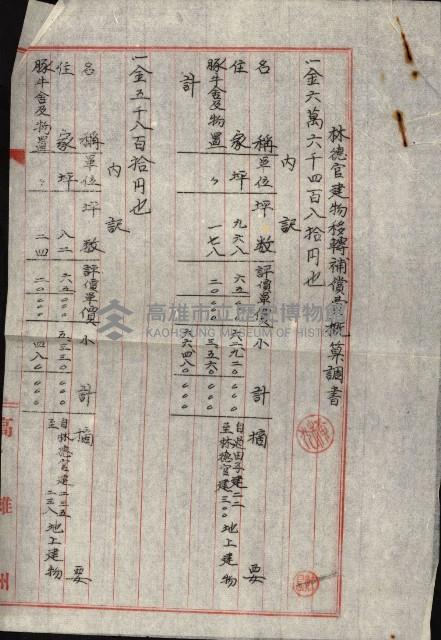 林德官建物移轉補償費概算調書
一金六萬六千四百八拾円也
內訳
名稱 單位 坪數 評價單價 小計 摘要
住家 坪 九六八 六五〇〇〇 六二九二〇〇〇〇 自過田子建二二
豚牛舍及物置 〃 一七八 二〇〇〇〇 三五六〇〇〇〇 至林德官建三〇〇 地上建物
計 六六四八〇〇〇〇
一金五千八百拾円也
內訳
名稱 單位 坪數 評價單價 小計 摘要
住家 坪 八二 六五〇〇〇 五三三〇〇〇〇 自林德官建二三五
豚牛舍及物置 〃 二四 二〇〇〇〇 四八〇〇〇〇 至〃 二三八 地上建物
高雄州
高雄市立歷史博物館
KAOHSIUNG MUSEUM OF HISTORY